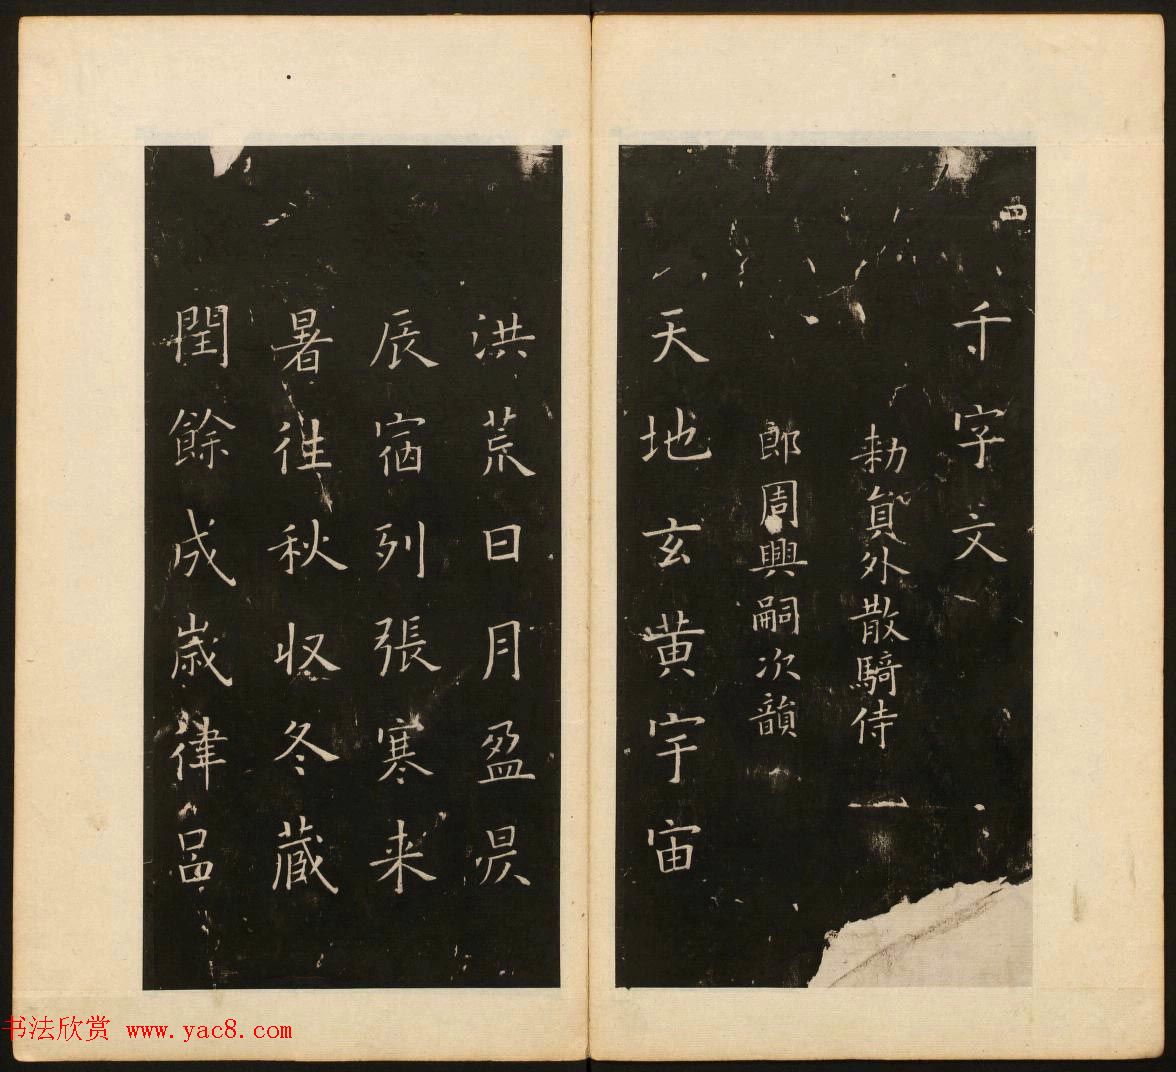 四
千字文
勑貟外散騎侍
郎周興嗣次韻
天地玄黄宇宙
洪荒日月盈昃
辰宿列張寒来
暑往秋収冬蔵
閏餘成歳律吕
书法欣赏 www.yac8.com